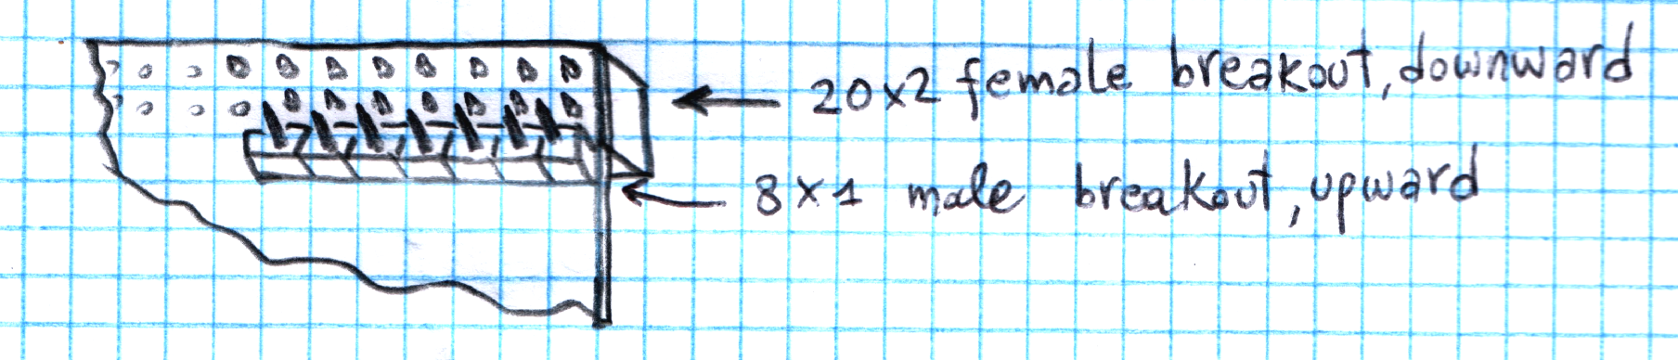 20x2 female breakout, downward
8x1 male breakout, upward